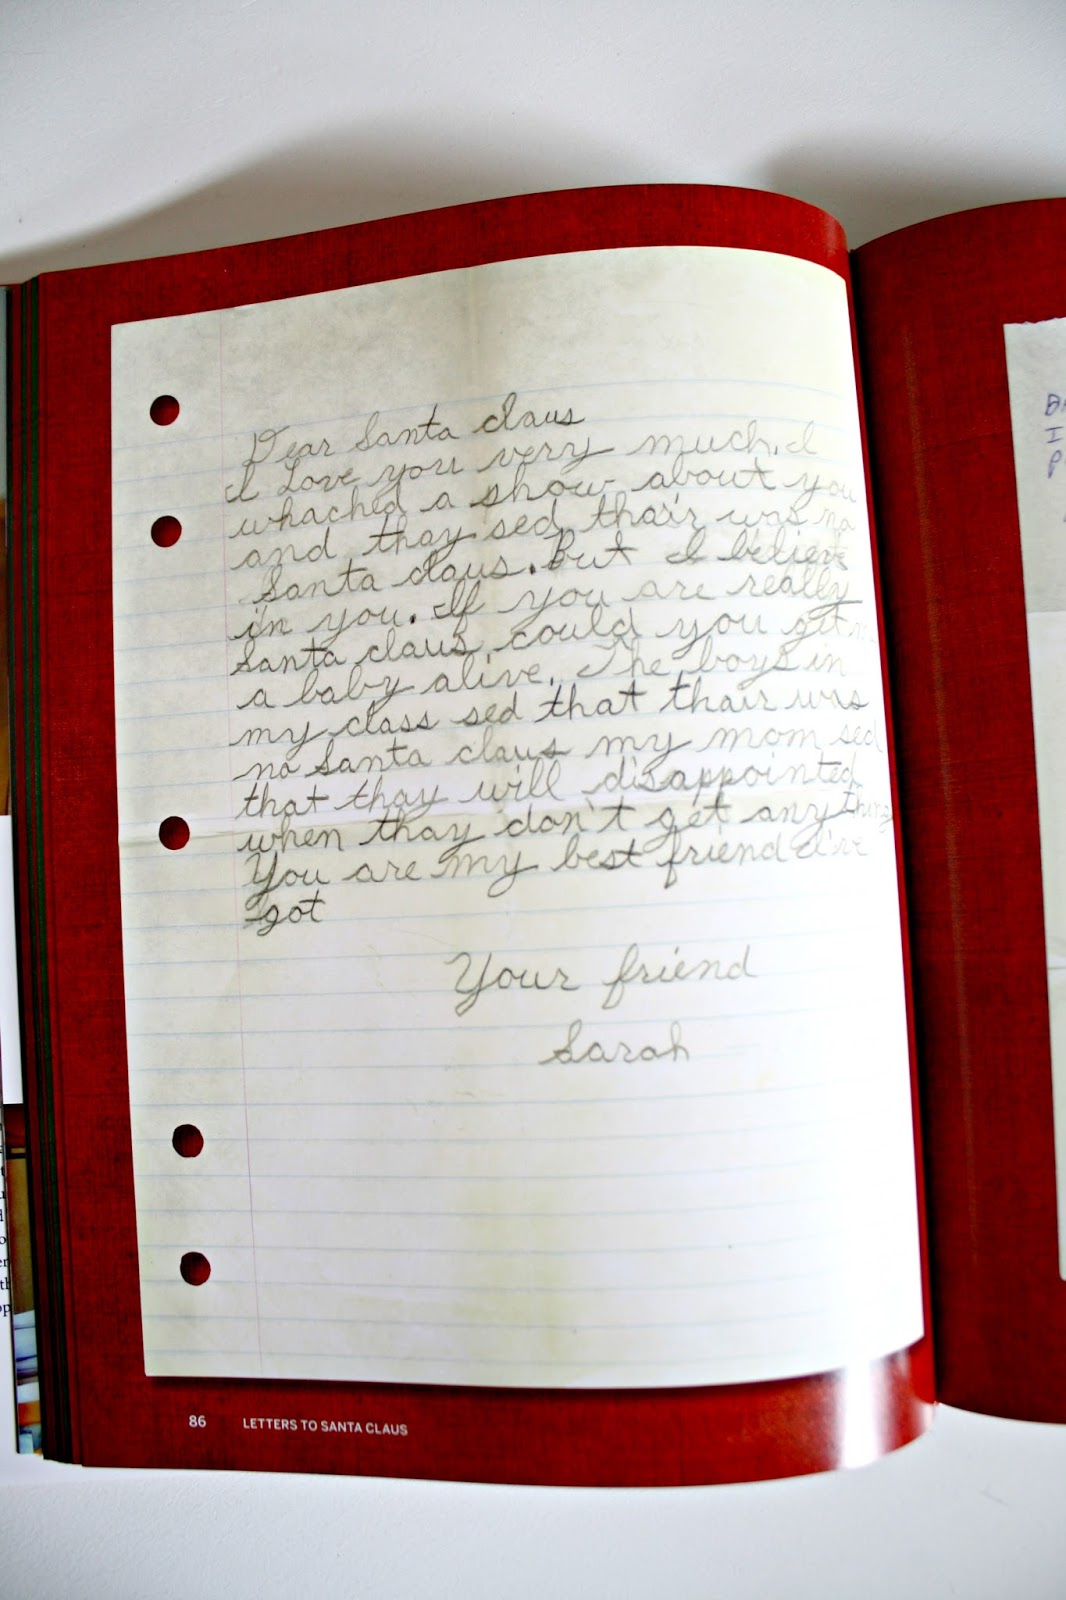 Dear Santa claus
I Love you very much. I
whached a show about you
and thay sed thair was no
Santa claus. But I believe
in you. If you are really
Santa claus could you get me
a baby alive. The boys in
my class sed that thair was
no Santa claus my mom sed
that thay will disappointed
when thay don't get any thing
You are my best friend I've
got
Your friend
Sarah
86 LETTERS TO SANTA CLAUS